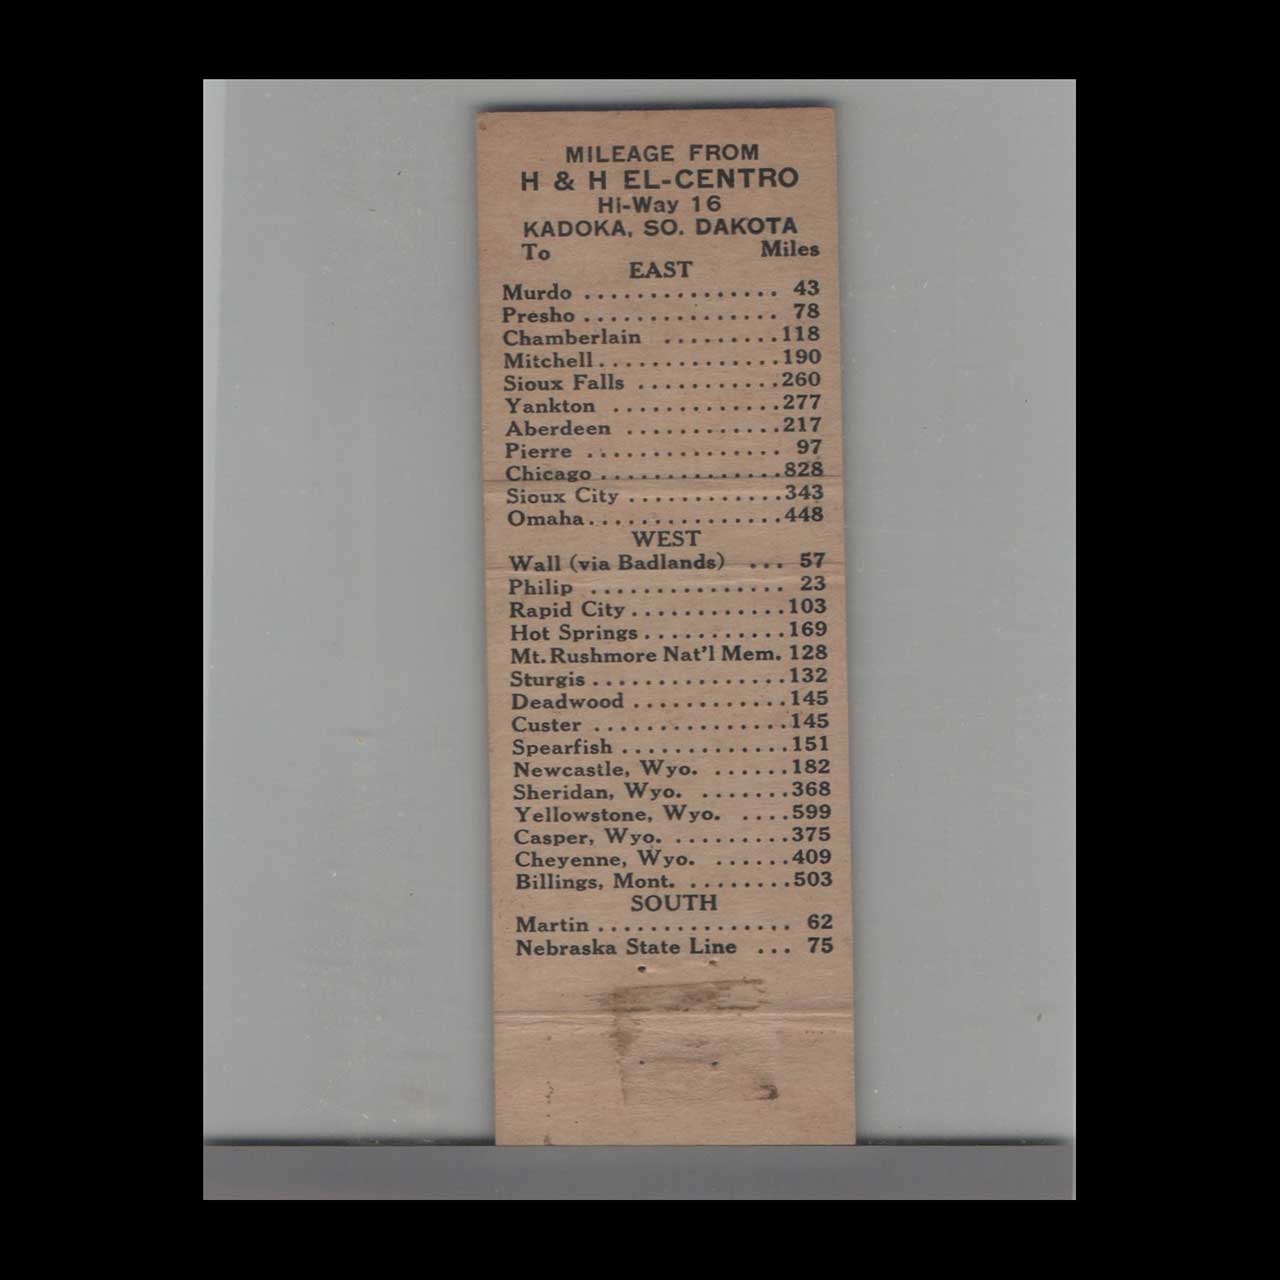 MILEAGE FROM
H & H EL-CENTRO
Hi-Way 16
KADOKA, SO. DAKOTA
To Miles
EAST
Murdo ............... 43
Presho ............... 78
Chamberlain .........118
Mitchell..............190
Sioux Falls ...........260
Yankton .............277
Aberdeen ............217
Pierre ............... 97
Chicago ..............828
Sioux City ............343
Omaha...............448
WEST
Wall (via Badlands) ... 57
Philip ............... 23
Rapid City............103
Hot Springs...........169
Mt. Rushmore Nat'l Mem. 128
Sturgis ...............132
Deadwood ............145
Custer ...............145
Spearfish .............151
Newcastle, Wyo. ......182
Sheridan, Wyo. .......368
Yellowstone, Wyo. ....599
Casper, Wyo. .........375
Cheyenne, Wyo. ......409
Billings, Mont. ........503
SOUTH
Martin ............... 62
Nebraska State Line ... 75